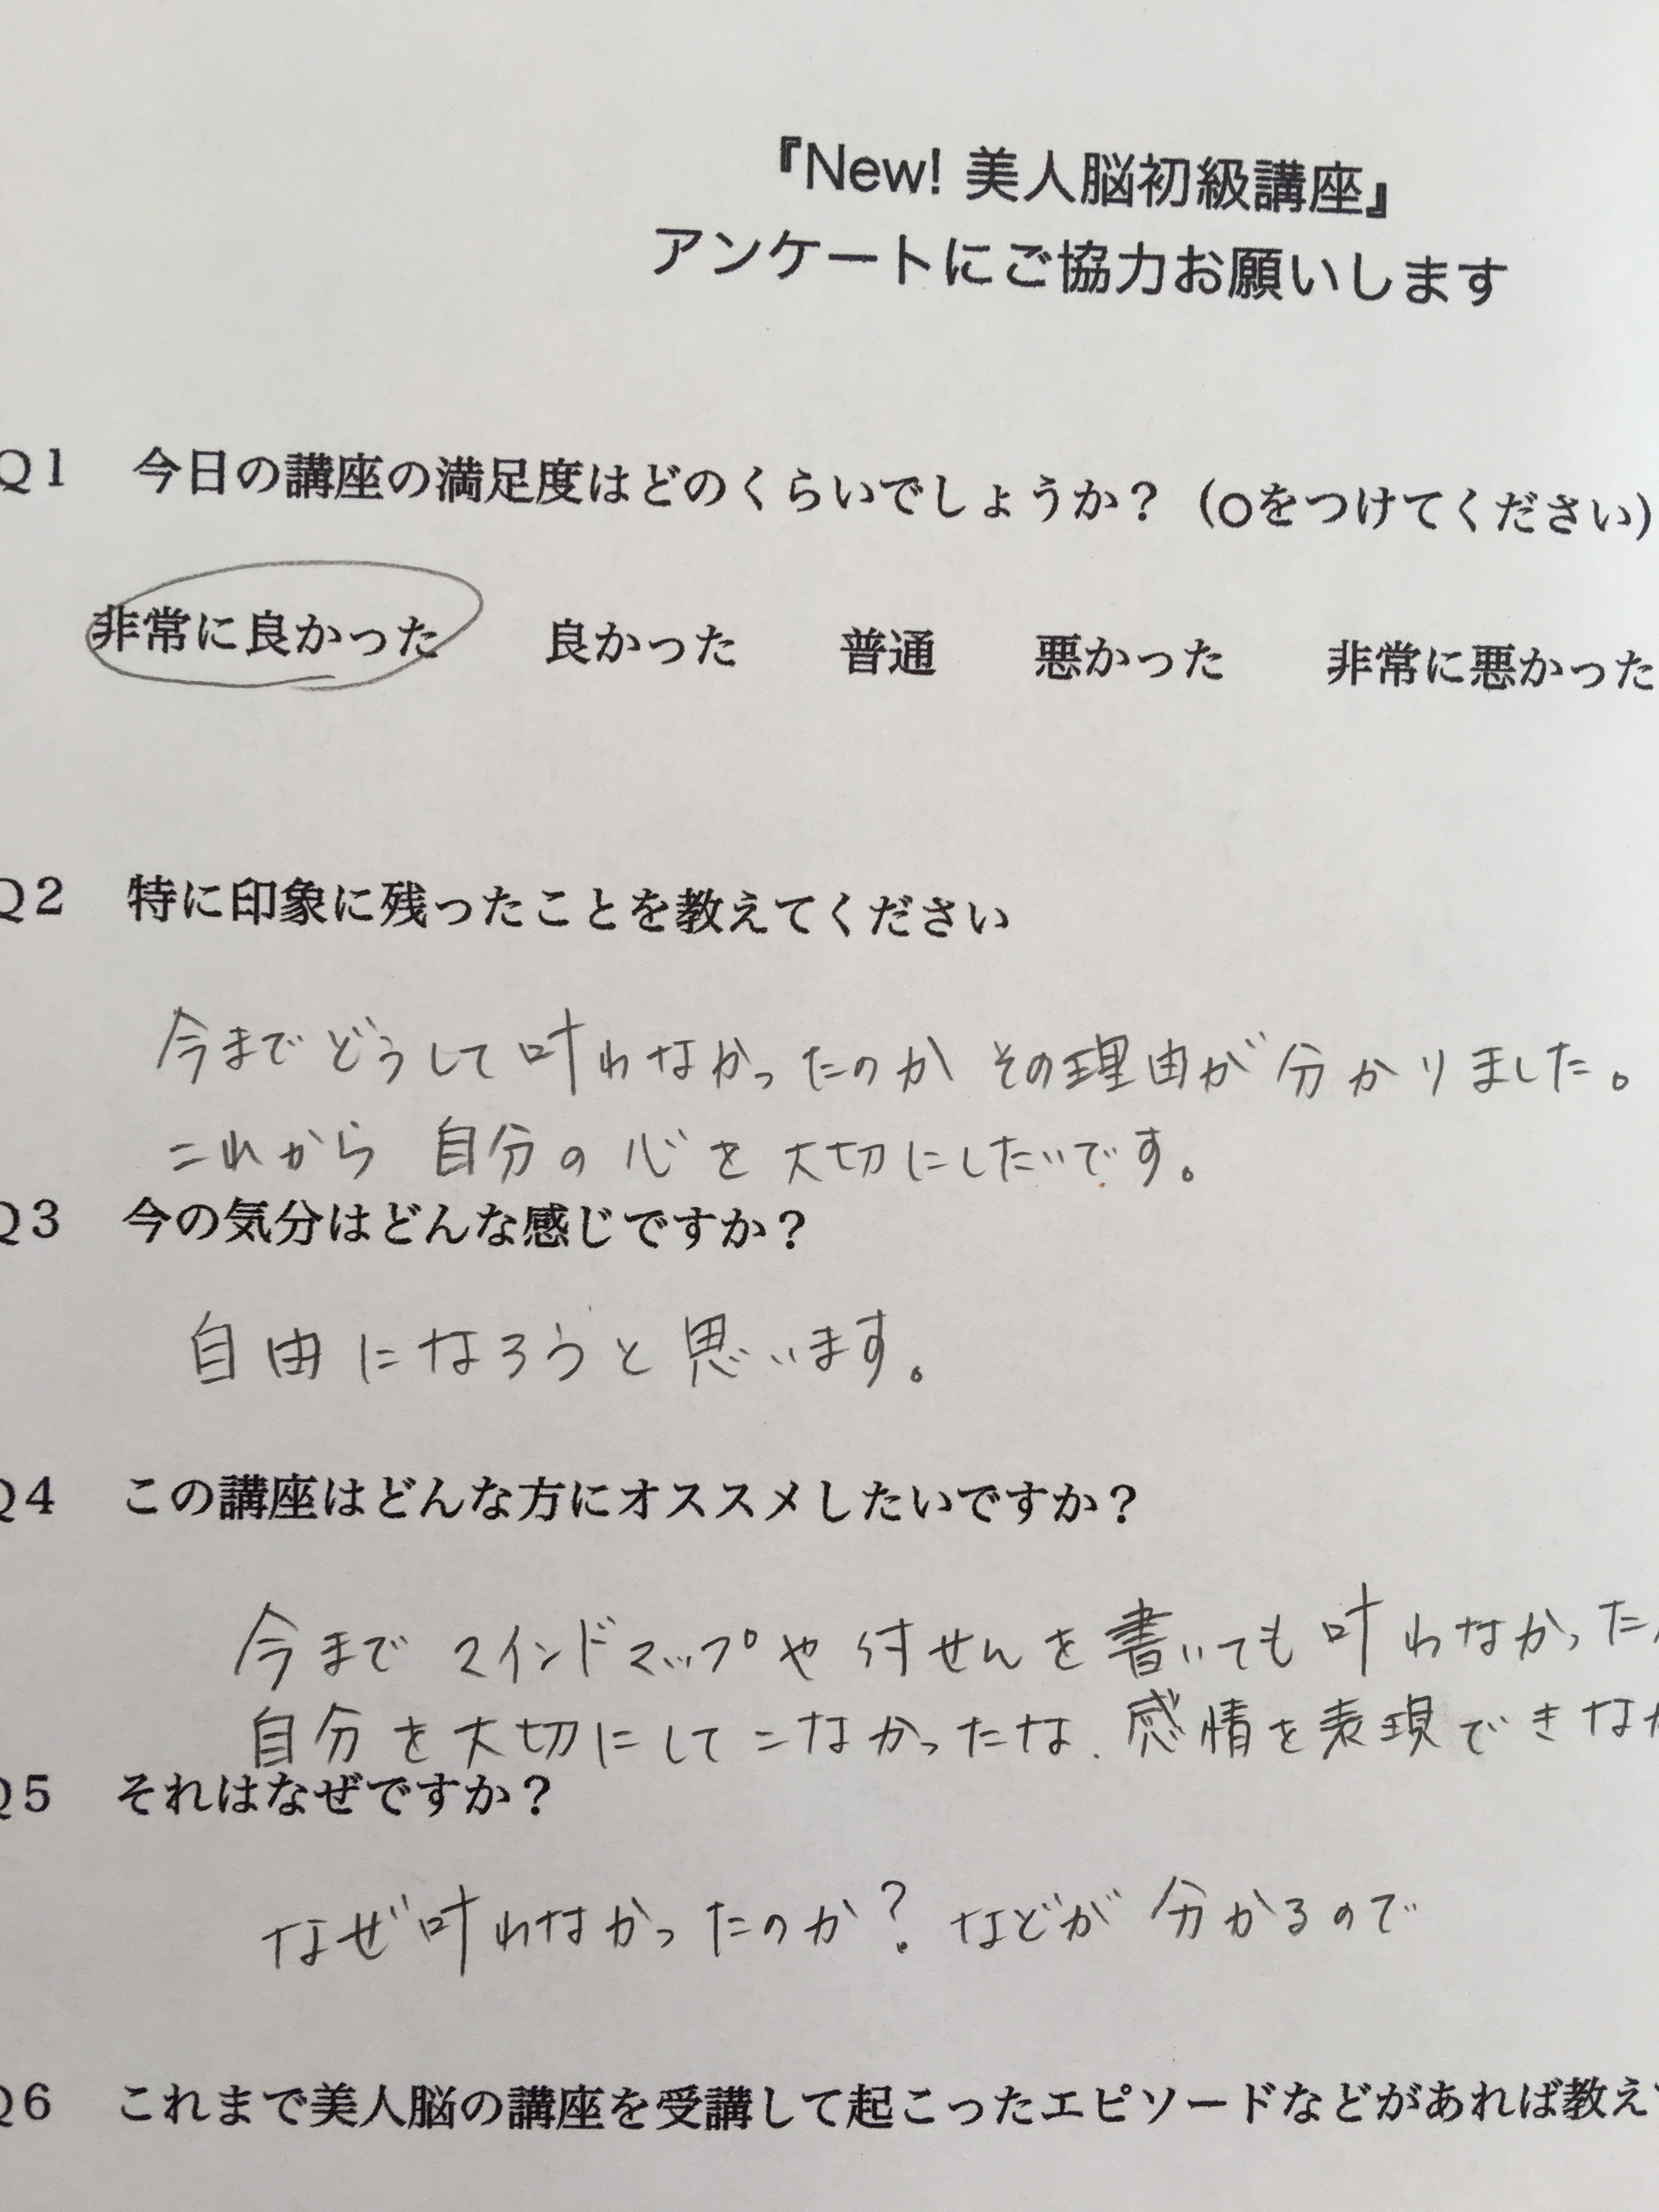 『New! 美人脳初級講座』
アンケートにご協力お願いします
Q1 今日の講座の満足度はどのくらいでしょうか？（○をつけてください）
非常に良かった 良かった 普通 悪かった 非常に悪かった
Q2 特に印象に残ったことを教えてください
今までどうして叶わなかったのか その理由が分かりました。
これから 自分の心を大切にしたいです。
Q3 今の気分はどんな感じですか？
自由になろうと思います。
Q4 この講座はどんな方にオススメしたいですか？
今まで マインドマップや付せんを書いても叶わなかった
自分を大切にしてこなかったな、感情を表現できな
Q5 それはなぜですか？
なぜ叶わなかったのか？などが 分かるので
Q6 これまで美人脳の講座を受講して起こったエピソードなどがあれば教え